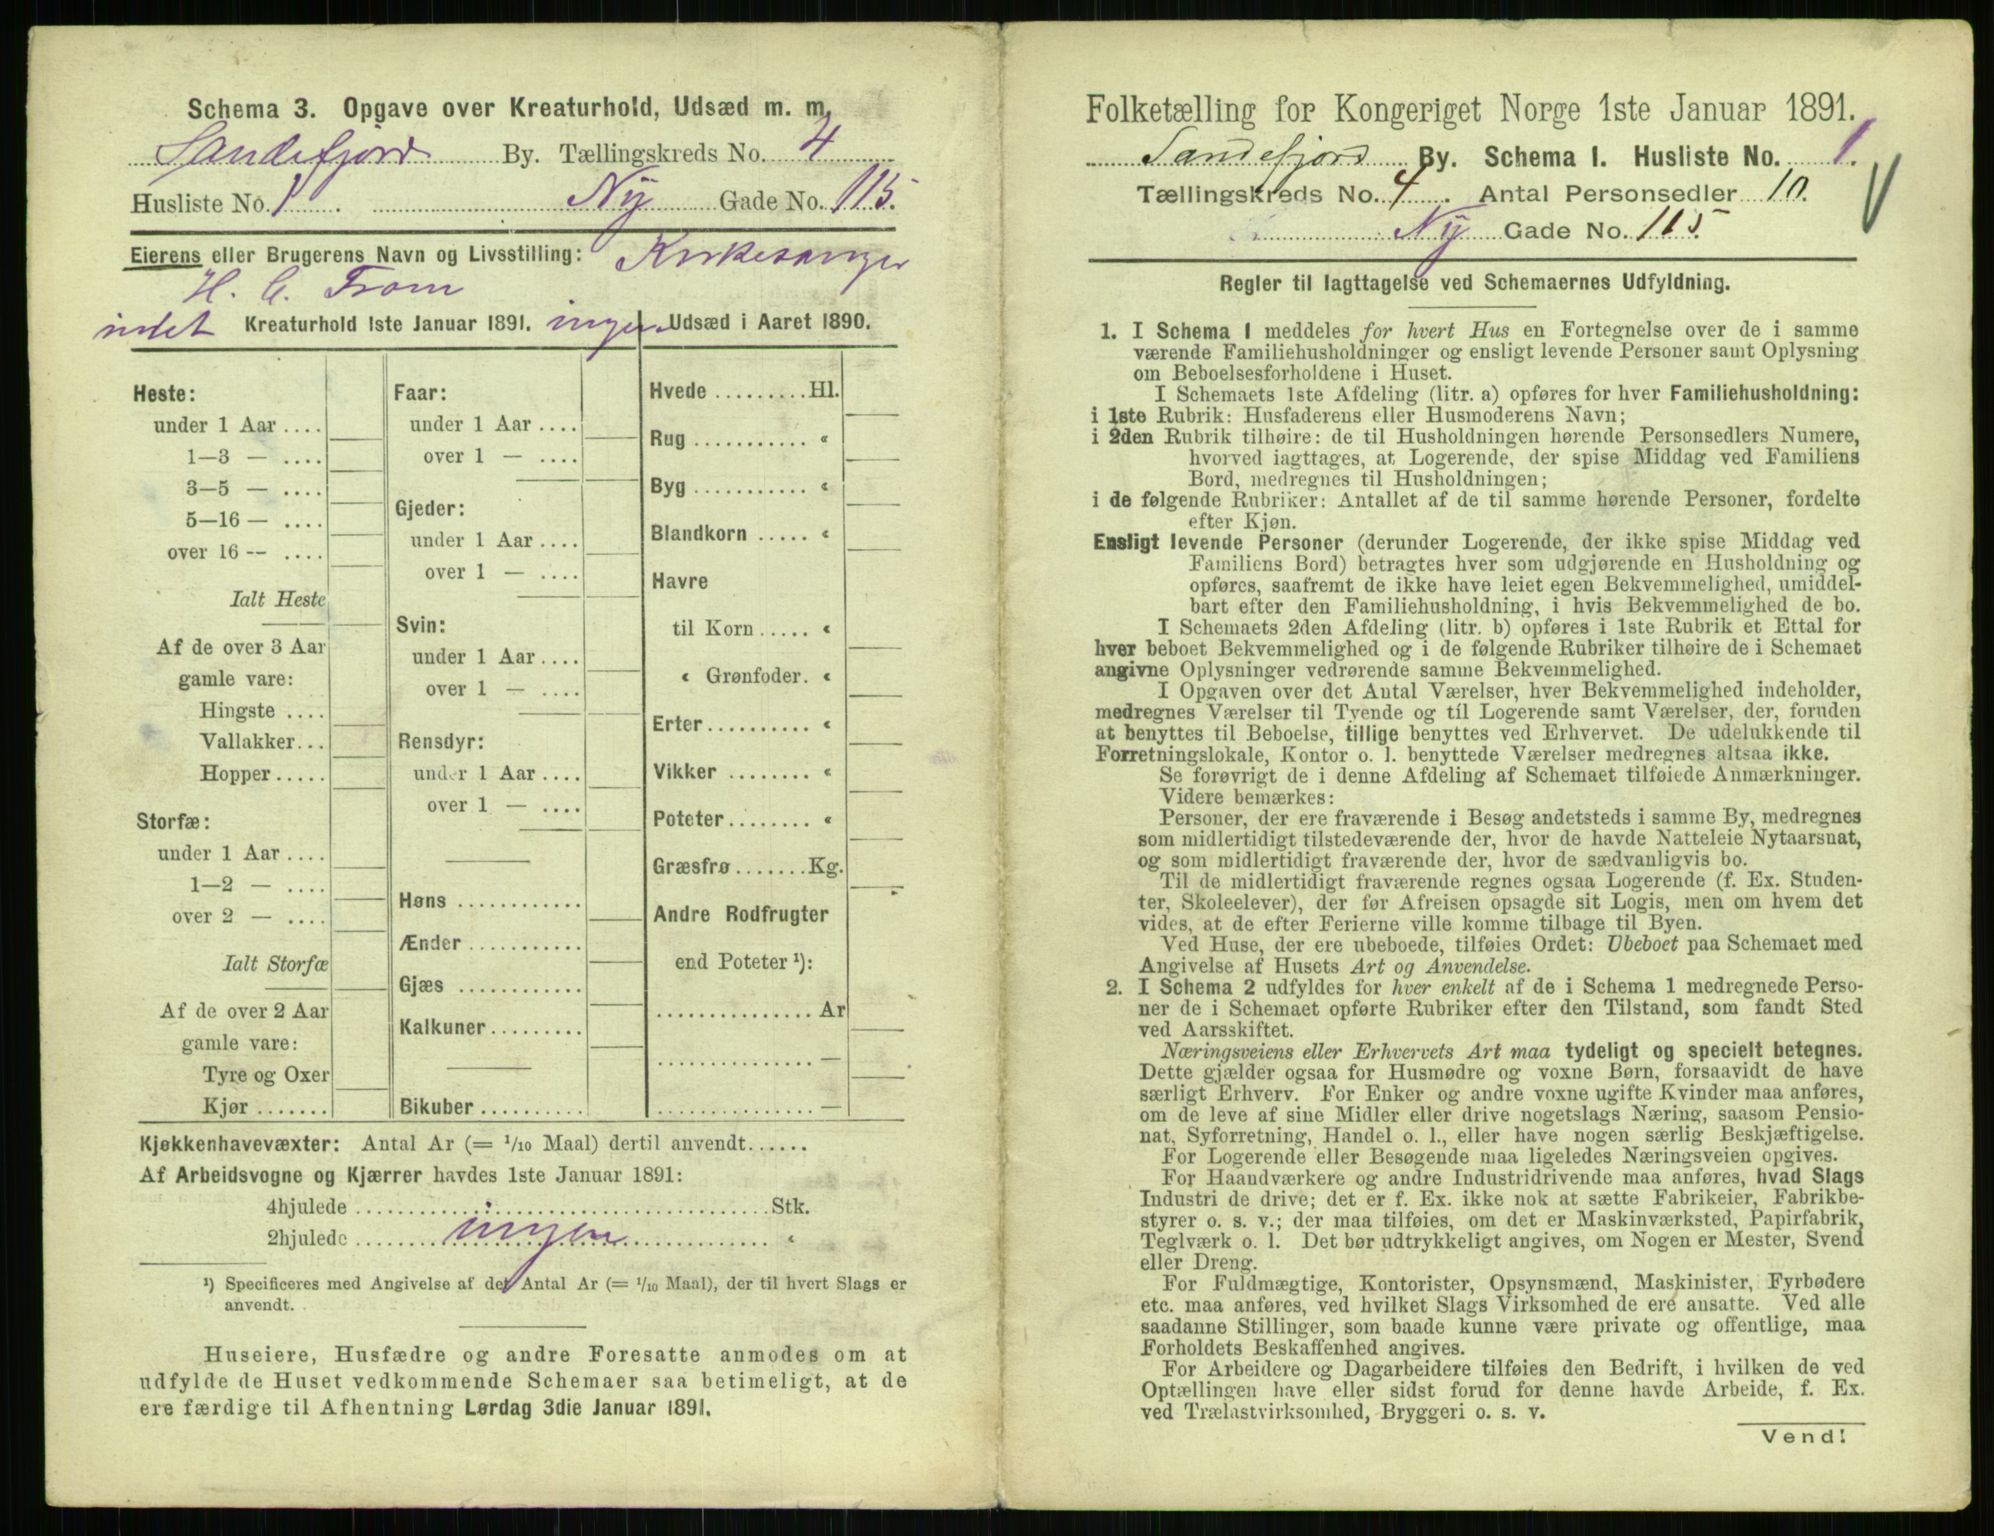 Schema 3. Opgave over Kreaturhold, Udsæd m. m.
Sandefjord By. Tællingskreds No. 4
Husliste No. 1 Ny Gade No. 115.
Eierens eller Brugerens Navn og Livsstilling: Kirkesanger
H. C. From
intet Kreaturhold 1ste Januar 1891. ingen Udsæd i Aaret 1890.
Heste:
under 1 Aar ....
1—3 — ....
3—5 — ....
5—16 — ....
over 16 — ....
Ialt Heste
Af de over 3 Aar
gamle vare:
Hingste ....
Vallakker...
Hopper .....
Storfæ:
under 1 Aar ....
1—2 — ....
over 2 — ....
Ialt Storfæ
Af de over 2 Aar
gamle vare:
Tyre og Oxer
Kjør .......
Faar:
under 1 Aar ....
over 1 — ....
Gjeder:
under 1 Aar ....
over 1 — ....
Svin:
under 1 Aar ....
over 1 — ....
Rensdyr:
under 1 Aar ....
over 1 — ....
Høns ...........
Ænder ...........
Gjæs ...........
Kalkuner.........
Bikuber ..........
Hvede ......... Hl.
Rug ........... «
Byg ........... «
Blandkorn ..... «
Havre
til Korn ..... «
« Grønfoder. «
Erter .......... «
Vikker ........ «
Poteter ........ «
Græsfrø ....... Kg.
Andre Rodfrugter
end Poteter ¹):
............... Ar
............... —
............... —
Kjøkkenhavevæxter: Antal Ar (= 1/10 Maal) dertil anvendt......
Af Arbeidsvogne og Kjærrer havdes 1ste Januar 1891:
4hjulede ........ Stk.
2hjulede ... ingen ... «
¹) Specificeres med Angivelse af det Antal Ar (= 1/10 Maal), der til hvert Slags er
anvendt.
Huseiere, Husfædre og andre Foresatte anmodes om at
udfylde de Huset vedkommende Schemaer saa betimeligt, at de
ere færdige til Afhentning Lørdag 3die Januar 1891.
Folketælling for Kongeriget Norge 1ste Januar 1891.
Sandefjord By. Schema 1. Husliste No. 1.
Tællingskreds No. 4. Antal Personsedler 10.
Ny Gade No. 115.
Regler til Iagttagelse ved Schemaernes Udfyldning.
1. I Schema 1 meddeles for hvert Hus en Fortegnelse over de i samme
værende Familiehusholdninger og ensligt levende Personer samt Oplysning
om Beboelsesforholdene i Huset.
I Schemaets 1ste Afdeling (litr. a) opføres for hver Familiehusholdning:
i 1ste Rubrik: Husfaderens eller Husmoderens Navn;
i 2den Rubrik tilhøire: de til Husholdningen hørende Personsedlers Numere,
hvorved iagttages, at Logerende, der spise Middag ved Familiens
Bord, medregnes til Husholdningen;
i de følgende Rubriker: Antallet af de til samme hørende Personer, fordelte
efter Kjøn.
Ensligt levende Personer (derunder Logerende, der ikke spise Middag ved
Familiens Bord) betragtes hver som udgjørende en Husholdning og
opføres, saafremt de ikke have leiet egen Bekvemmelighed, umiddel-
bart efter den Familiehusholdning, i hvis Bekvemmelighed de bo.
I Schemaets 2den Afdeling (litr. b) opføres i 1ste Rubrik et Ettal for
hver beboet Bekvemmelighed og i de følgende Rubriker tilhøire de i Schemaet
angivne Oplysninger vedrørende samme Bekvemmelighed.
I Opgaven over det Antal Værelser, hver Bekvemmelighed indeholder,
medregnes Værelser til Tyende og til Logerende samt Værelser, der, foruden
at benyttes til Beboelse, tillige benyttes ved Erhvervet. De udelukkende til
Forretningslokale, Kontor o. l. benyttede Værelser medregnes altsaa ikke.
Se forøvrigt de i denne Afdeling af Schemaet tilføiede Anmærkninger.
Videre bemærkes:
Personer, der ere fraværende i Besøg andetsteds i samme By, medregnes
som midlertidigt tilstedeværende der, hvor de havde Natteleie Nytaarsnat,
og som midlertidigt fraværende der, hvor de sædvanligvis bo.
Til de midlertidigt fraværende regnes ogsaa Logerende (f. Ex. Studen-
ter, Skoleelever), der før Afreisen opsagde sit Logis, men om hvem det
vides, at de efter Ferierne ville komme tilbage til Byen.
Ved Huse, der ere ubeboede, tilføies Ordet: Ubeboet paa Schemaet med
Angivelse af Husets Art og Anvendelse.
2. I Schema 2 udfyldes for hver enkelt af de i Schema 1 medregnede Perso-
ner de i Schemaet opførte Rubriker efter den Tilstand, som fandt Sted
ved Aarsskiftet.
Næringsveiens eller Erhvervets Art maa tydeligt og specielt betegnes.
Dette gjælder ogsaa for Husmødre og voxne Børn, forsaavidt de have
særligt Erhverv. For Enker og andre voxne ugifte Kvinder maa anføres,
om de leve af sine Midler eller drive nogetslags Næring, saasom Pensio-
nat, Syforretning, Handel o. l., eller have nogen særlig Beskjæftigelse.
For Logerende eller Besøgende maa ligeledes Næringsveien opgives.
For Haandværkere og andre Industridrivende maa anføres, hvad Slags
Industri de drive; det er f. Ex. ikke nok at sætte Fabrikeier, Fabrikbe-
styrer o. s. v.; der maa tilføies, om det er Maskinværksted, Papirfabrik,
Teglværk o. l. Det bør udtrykkeligt angives, om Nogen er Mester, Svend
eller Dreng.
For Fuldmægtige, Kontorister, Opsynsmænd, Maskinister, Fyrbødere
etc. maa anføres, ved hvilket Slags Virksomhed de ere ansatte. Ved alle
saadanne Stillinger, som baade kunne være private og offentlige, maa
Forholdets Beskaffenhed angives.
For Arbeidere og Dagarbeidere tilføies den Bedrift, i hvilken de ved
Optællingen have eller sidst forud for denne havde Arbeide, f. Ex.
ved Trælastvirksomhed, Bryggeri o. s. v.
Vend!